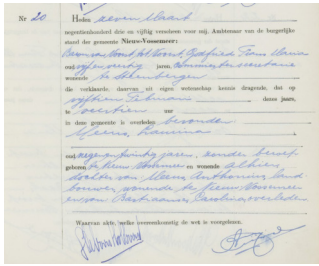 Nr 20
Heden zeven Maart
negentienhonderd drie en vijftig verscheen voor mij, Ambtenaar van de burgerlijke
stand der gemeente Nieuw-Vossemeer:
van Voorst tot Voorst, Godfried Maria
oud vijf en veertig jaren, secretaris
wonende te Steenbergen
die verklaarde, daarvan uit eigen wetenschap kennis dragende, dat op
vijftien Februari dezes jaars,
te veertien uur
in deze gemeente is overleden bevonden
Meeus, Paulina
oud negen en twintig jaren, zonder beroep
geboren te Nieuw-Vossemeer en wonende alhier
dochter van Meeus, Anthonius, land
bouwer, wonende te Nieuw-Vossemeer
en van Bastiaansen, Carolina, overleden
Waarvan akte, welke overeenkomstig de wet is voorgelezen.